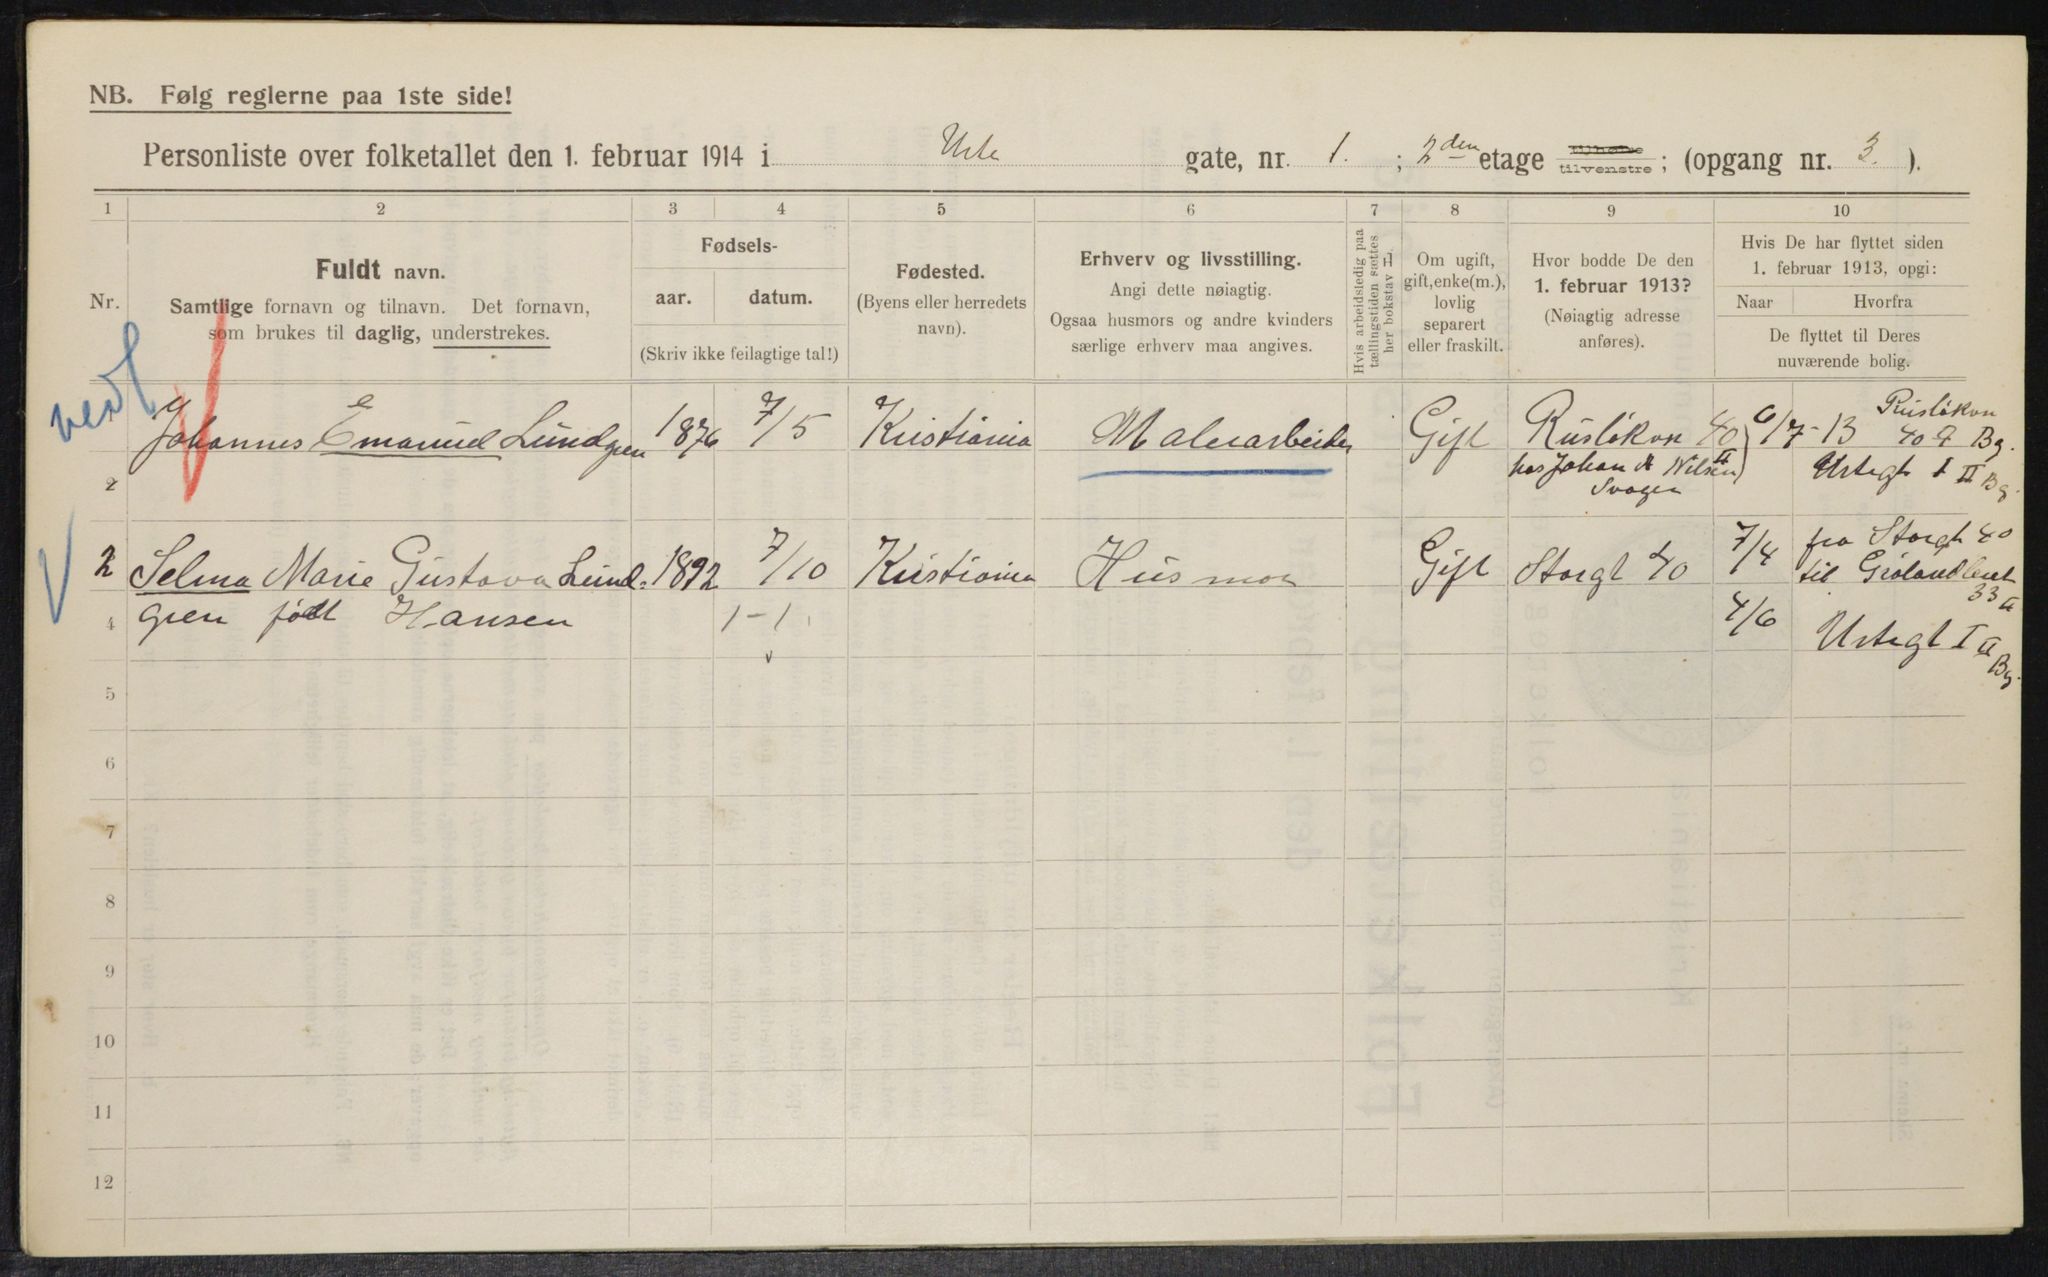 NB. Følg reglerne paa 1ste side!
Personliste over folketallet den 1. februar 1914 i Urte gate, nr. 1. ; 2den etage tilhøire tilvenstre ; (opgang nr. 3. ).
1 2 3 4 5 6 7 8 9 10
Nr.
Fuldt navn.
Samtlige fornavn og tilnavn. Det fornavn,
som brukes til daglig, understrekes.
Fødsels-
aar. datum.
(Skriv ikke feilagtige tal!)
Fødested.
(Byens eller herredets
navn).
Erhverv og livsstilling.
Angi dette nøiagtig.
Ogsaa husmors og andre kvinders
særlige erhverv maa angives.
Hvis arbeidsledig paa
tællingstiden sættes
her bokstav L
Om ugift,
gift, enke(m.),
lovlig
separert
eller fraskilt.
Hvor bodde De den
1. februar 1913?
(Nøiagtig adresse
anføres).
Hvis De har flyttet siden
1. februar 1913, opgi:
Naar Hvorfra
De flyttet til Deres
nuværende bolig.
1 Johannes Emanuel Lundgren 1876 7/5 Kristiania Malerarbeider Gift Rusløkvn 40 II 6/7-13 Rusløkvn
40 Bg.
hos Johan Nilsen
Svoger
Urtegt 1 II Bg.
2
2 Selma Marie Gustava Lund- 1892 7/10 Kristiania Husmor Gift Storgt 40 7/4 fra Storgt 40
til Grølandleret
33
4 gren født Hansen 1-1. 4/6 Urtegt 1 Bg.
5
6
7
8
9
10
11
12